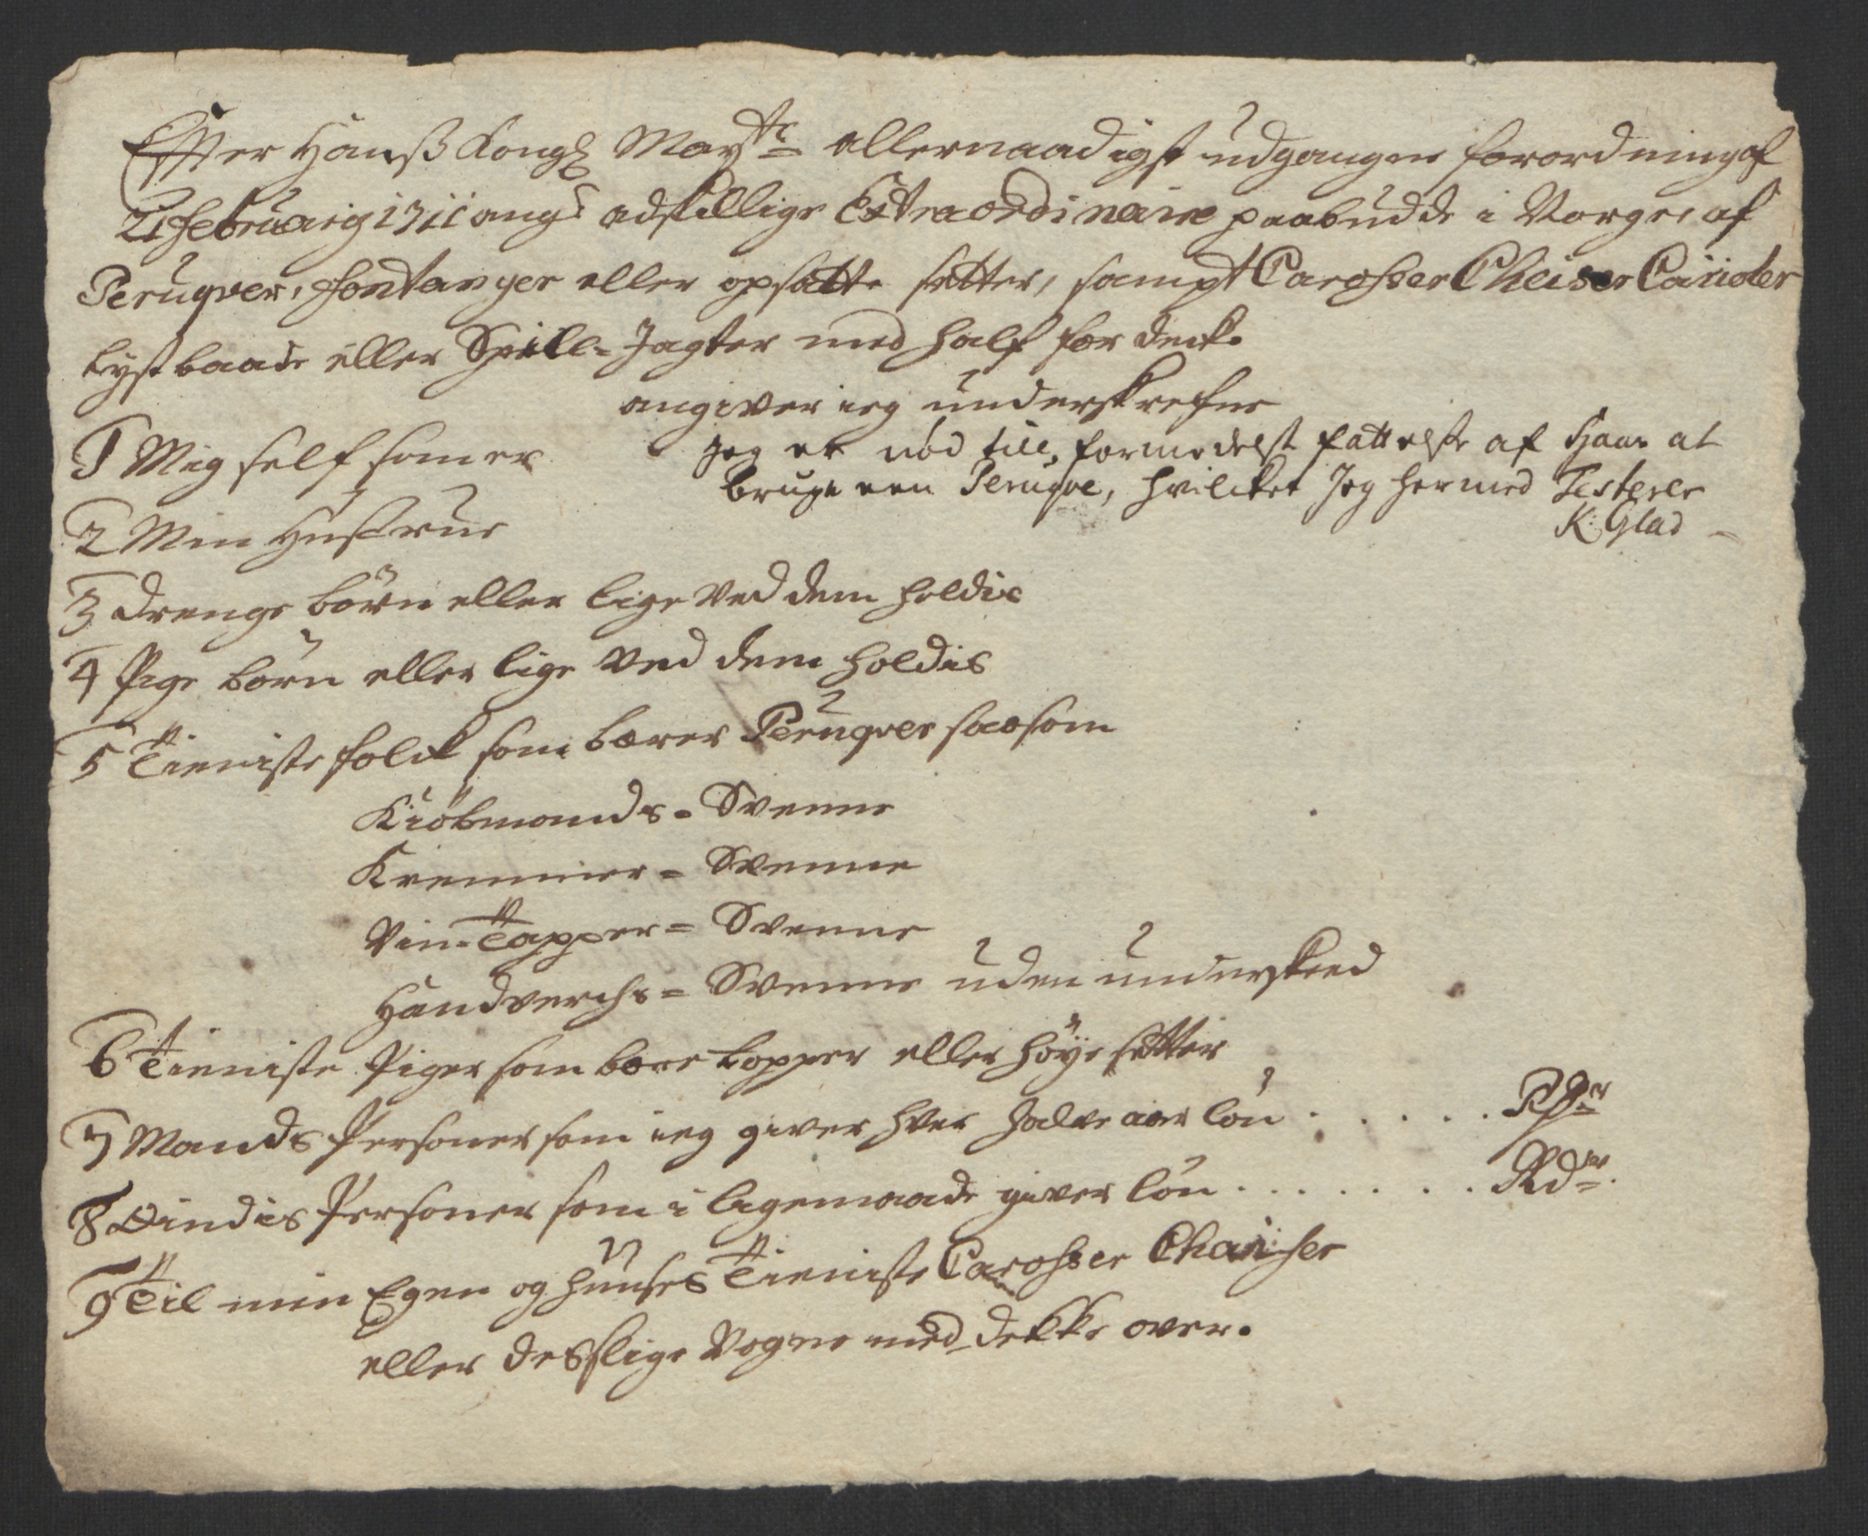 Effter Hanß Kongl Maytz allernaadigst udgangne forordning af
21 februarij 1711 angd adskillige Extraordinaire paabudde i Norge, af
Peruqver, fontanger eller opsatte setter, sampt Carosser Cheiser Carioler
Lyst baade eller Spill-Jagter med half for deck.
angiver ieg underskrefne
1 Mig self som er
Jeg er nød till, formedelst fattelse af Haar at
bruge een Peruqve, hvilcket Jeg hermed Testerer
K: Glad
2 Min Hustrue
3 Drenge børn eller lige ved dem holdis
4 Pige børn eller lige ved dem holdis
5 Tieniste folck som bærer Peruqver saasom
Kiøbmands- Svenne
Kremmer- Svenne
Vin-Tapper- Svenne
Handverchs- Svenne uden underskeed
6 Tieniste Piger som bære topper eller høye setter
7 Mands Personer som ieg giver hver halve aar løn . . . . . Rdr
8 Qvindis Personer som i ligemaade giver løn . . . . . . . Rdr.
9 Til min Egen og huuses Tieniste Carosser Chaiser
eller desslige Vogne med dekke over.